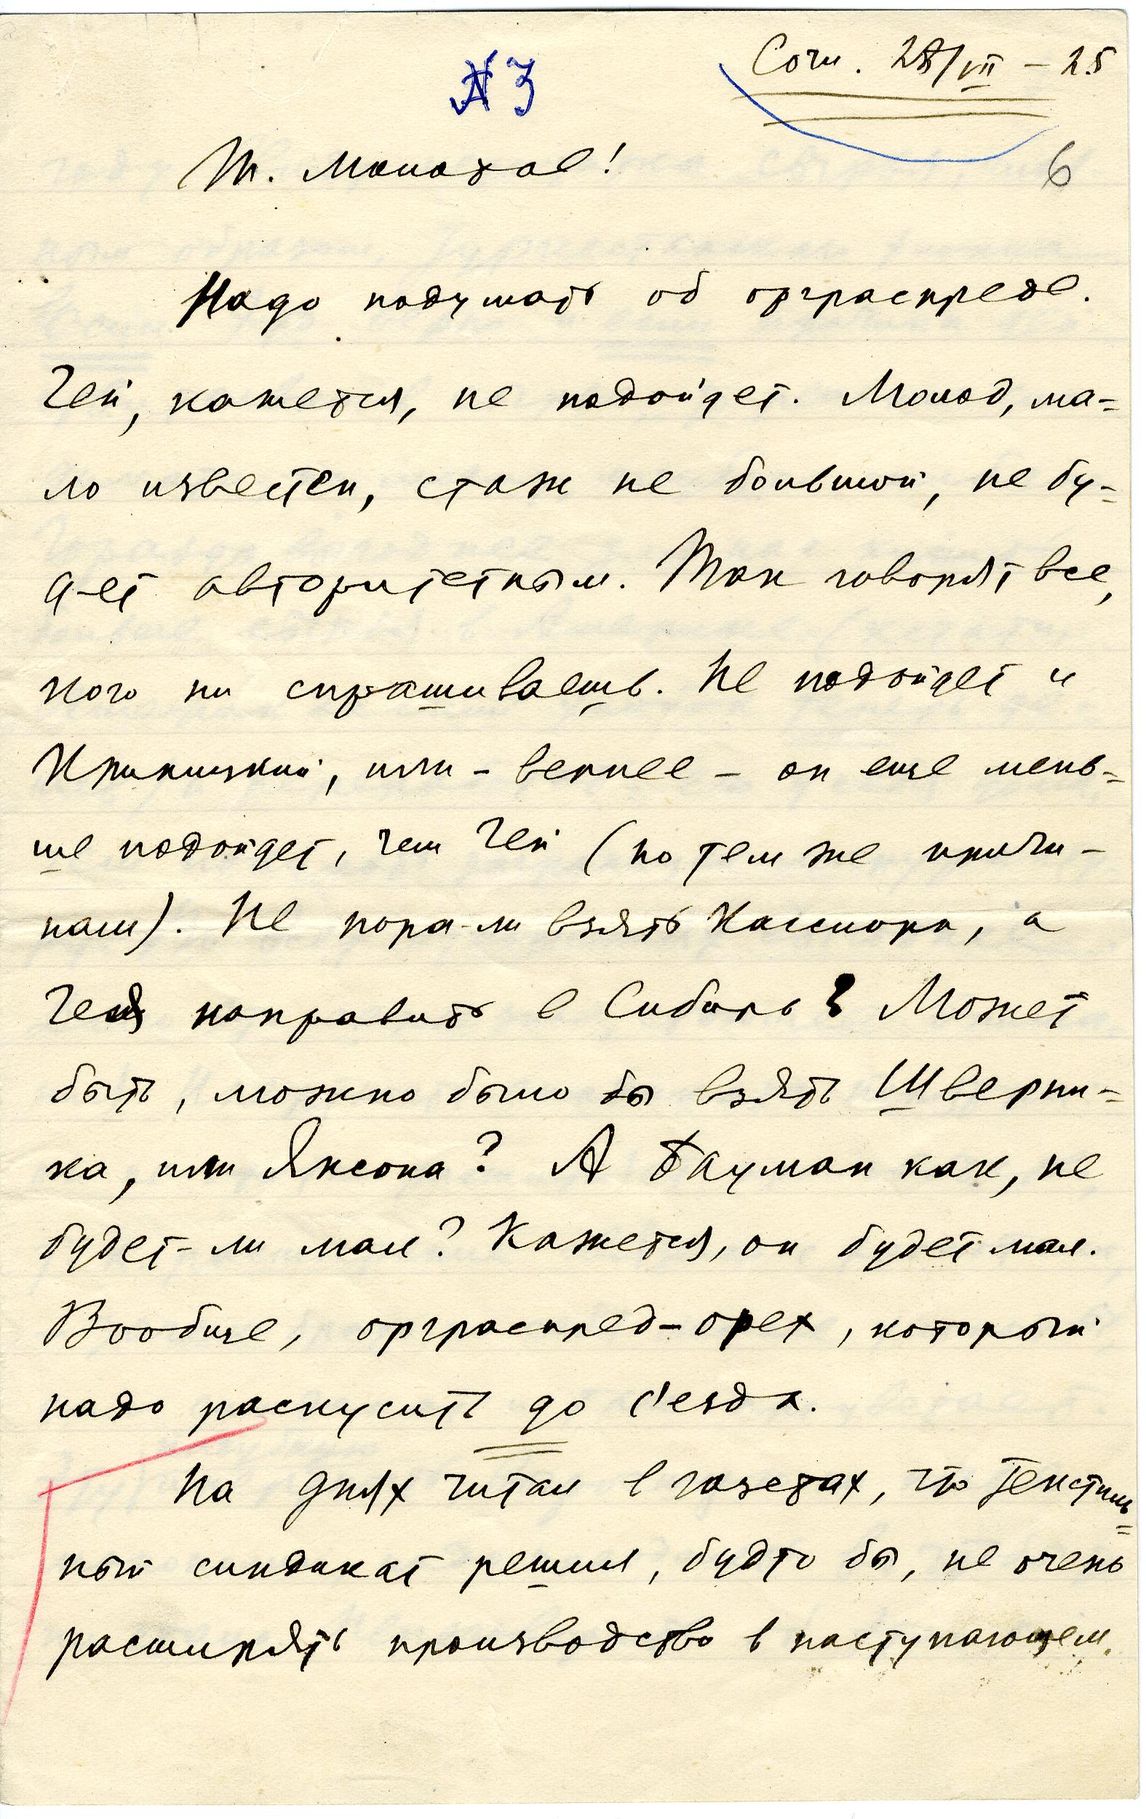 № 3
Сочи. 28/VII – 25
6
Т. Молотов!
Надо подумать об орграспреде.
Гей, кажется, не подойдет. Молод, ма=
ло известен, стаж не большой, не бу=
дет авторитетным. Так говорят все,
кого ни спрашиваешь. Не подойдет и
Криницкий, или – вернее – он еще мень=
ше подойдет, чем Гей (по тем же причи–
нам). Не пора-ли взять Кассиора, а
Гея направить в Сибирь? Может
быть, можно было бы взять Шверни=
ка, или Янсона? А Бауман как, не
будет-ли мал? Кажется, он будет мал.
Вообще, орграспред–орех, который
надо раскусить до с'езда.
На днях читал в газетах, что Текстиль=
ный синдикат решил, будто бы, не очень
расширять производство в наступающем